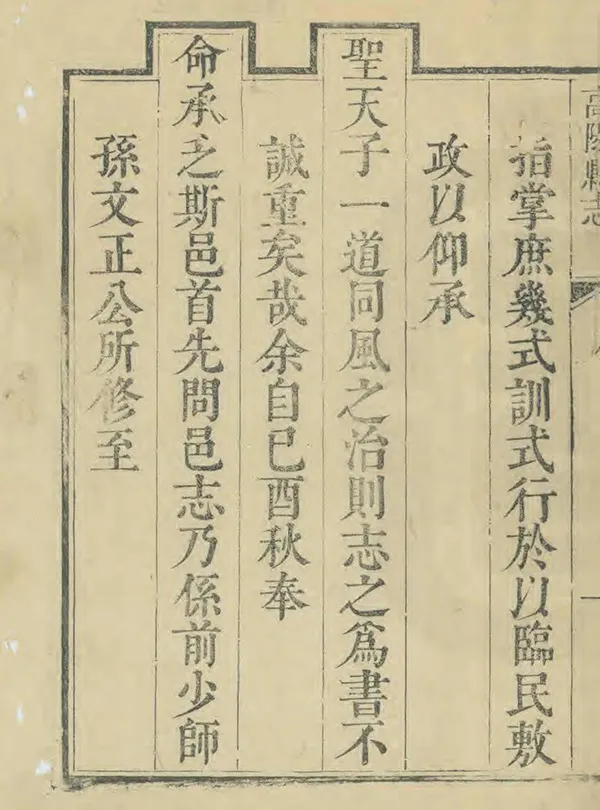 高陽縣志
指掌庶幾式訓式行於以臨民敷
政以仰承
聖天子一道同風之治則志之爲書不
誠重矣哉余自己酉秋奉
命承乏斯邑首先問邑志乃係前少師
孫文正公所修至